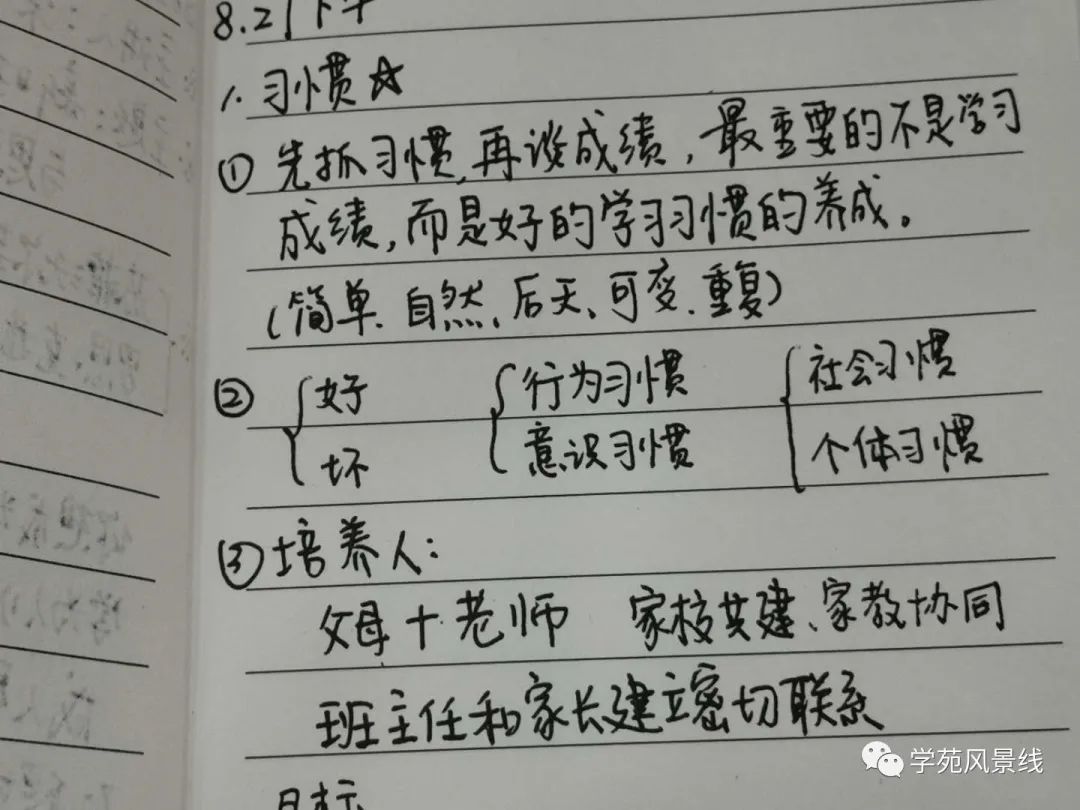 8.21下午
1. 习惯☆
① 先抓习惯,再谈成绩,最重要的不是学习
成绩,而是好的学习习惯的养成。
(简单、自然、后天、可变、重复)
② {好 {行为习惯 {社会习惯
坏 意识习惯 个体习惯
③ 培养人:
父母+老师 家校共建、家教协同
班主任和家长建立密切联系
目标
学苑风景线